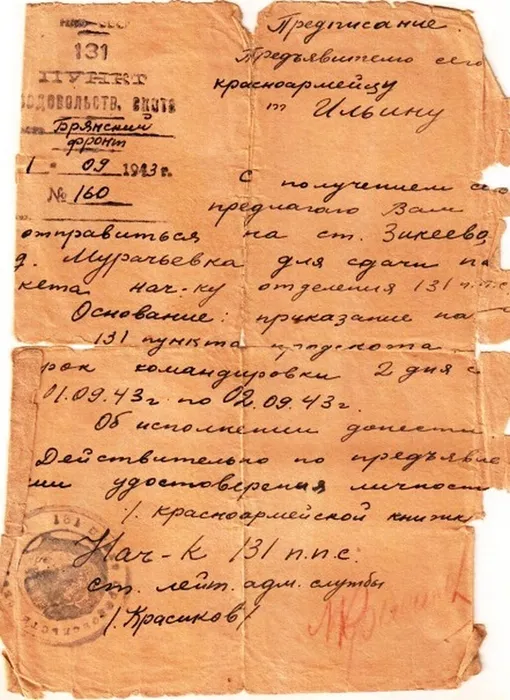 131
ПУНКТ
ОДОВОЛЬСТВ. СКОТА
Брянский
фронт
1 " 09 1943 г.
№ 160
Предписание.
Предъявителю сего
красноармейцу
т Ильину
С получением се
предлагаю Вам
отправиться на ст. Зикеево,
д. Мурачьевка для сдачи па
кета нач-ку отделения 131 п.п.с
Основание: приказание на
131 пункта продскота
рок командировки 2 дня с
01.09.43г. по 02.09.43г.
Об исполнении донести
Действительно по предъявле
ии удостоверения личност
/. красноармейской книжк
Нач-к 131 п.п.с.
ст. лейт. адм. службы
/. Красиков/